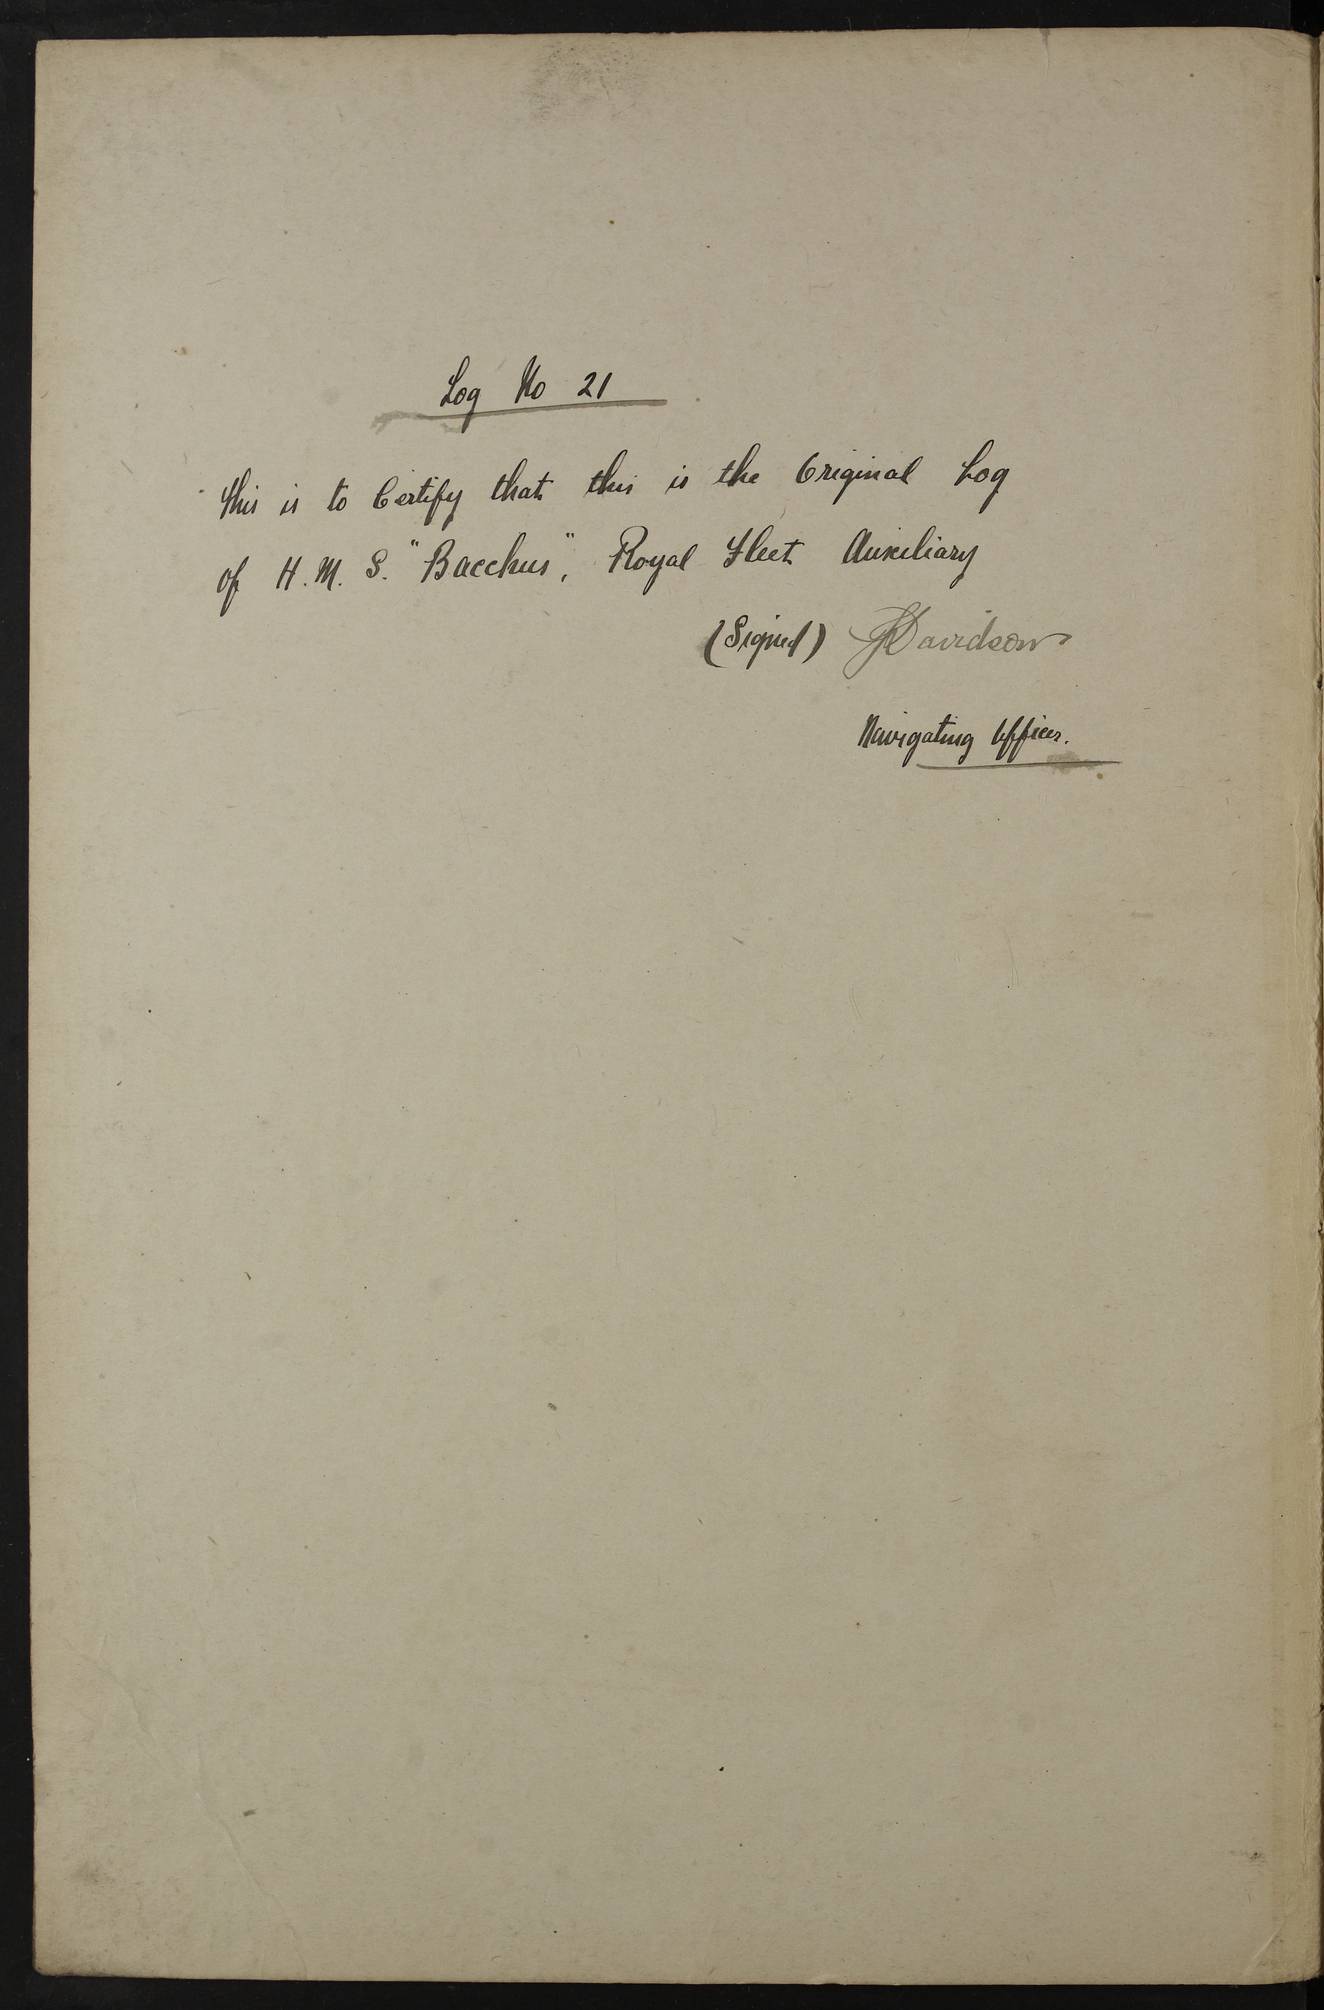 Log No 21
This is to Certify that this is the Original Log
of H. M. S. "Bacchus", Royal Fleet Auxiliary
(Signed) Davidson
Navigating Officer.